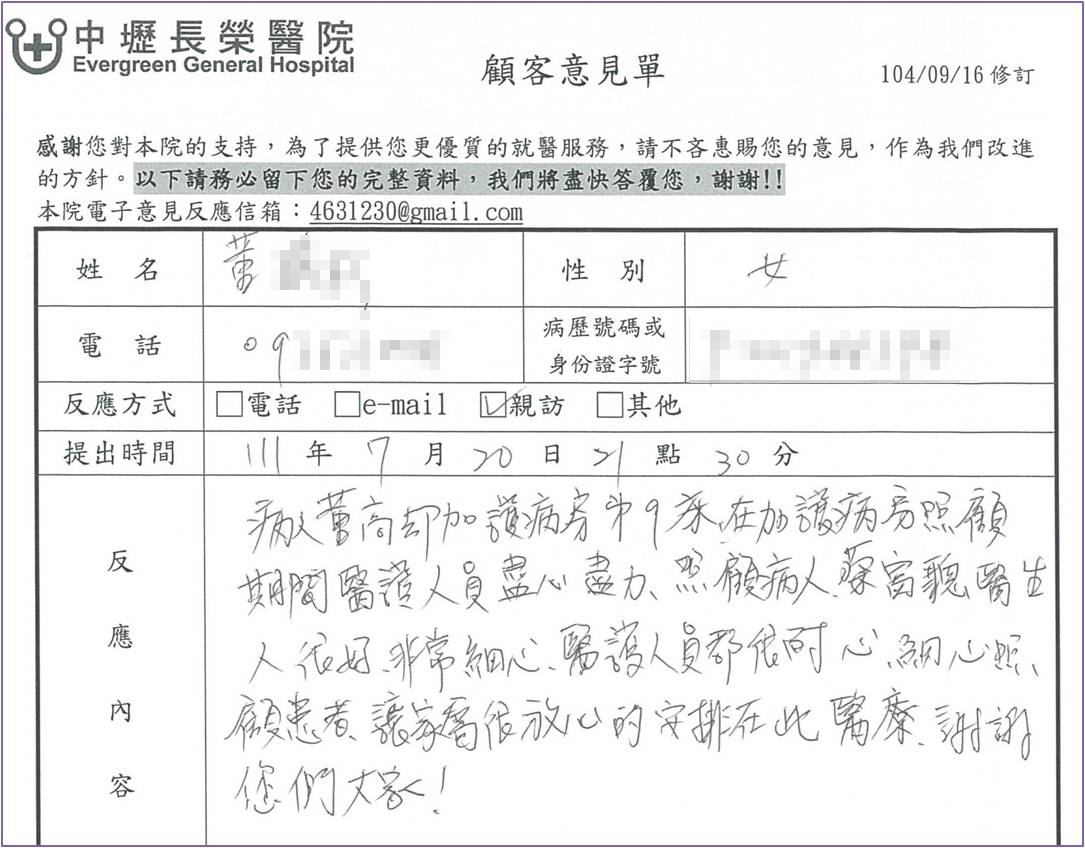 中壢長榮醫院
Evergreen General Hospital
顧客意見單
104/09/16 修訂
感謝您對本院的支持，為了提供您更優質的就醫服務，請不吝惠賜您的意見，作為我們改進
的方針。以下請務必留下您的完整資料，我們將盡快答覆您，謝謝!!
本院電子意見反應信箱：4631230@gmail.com
姓 名 董 性 別 女
電 話 09 病歷號碼或
身份證字號
反應方式 □電話 □e-mail ☑親訪 □其他
提出時間 111 年 7 月 20 日 21 點 30 分
反應內容
病人董高却加護病房第9床、在加護病房照顧
期間醫護人員盡心盡力、照顧病人、蔡富聰醫生
人很好、非常細心、醫護人員都很耐心、細心照
顧患者、讓家屬很放心的安排在此醫療、謝謝
您們大家！